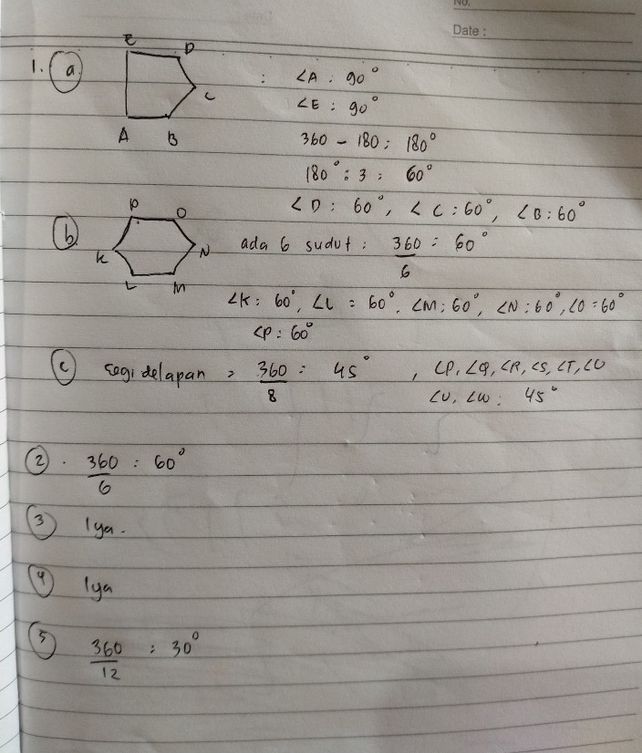 No.
Date :
1. a E D C A B : ∠A : 90°
∠E : 90°
360 - 180 : 180°
180° : 3 : 60°
∠D : 60°, ∠C : 60°, ∠B : 60°
b P O N M L K ada 6 sudut : 360/6 = 60°
∠K : 60°, ∠L = 60°, ∠M : 60°, ∠N : 60°, ∠O = 60°
∠P : 60°
c Segi delapan = 360/8 = 45° , ∠P, ∠Q, ∠R, ∠S, ∠T, ∠U
∠V, ∠W : 45°
2 . 360/6 : 60°
3 Iya.
4 Iya
5 360/12 : 30°